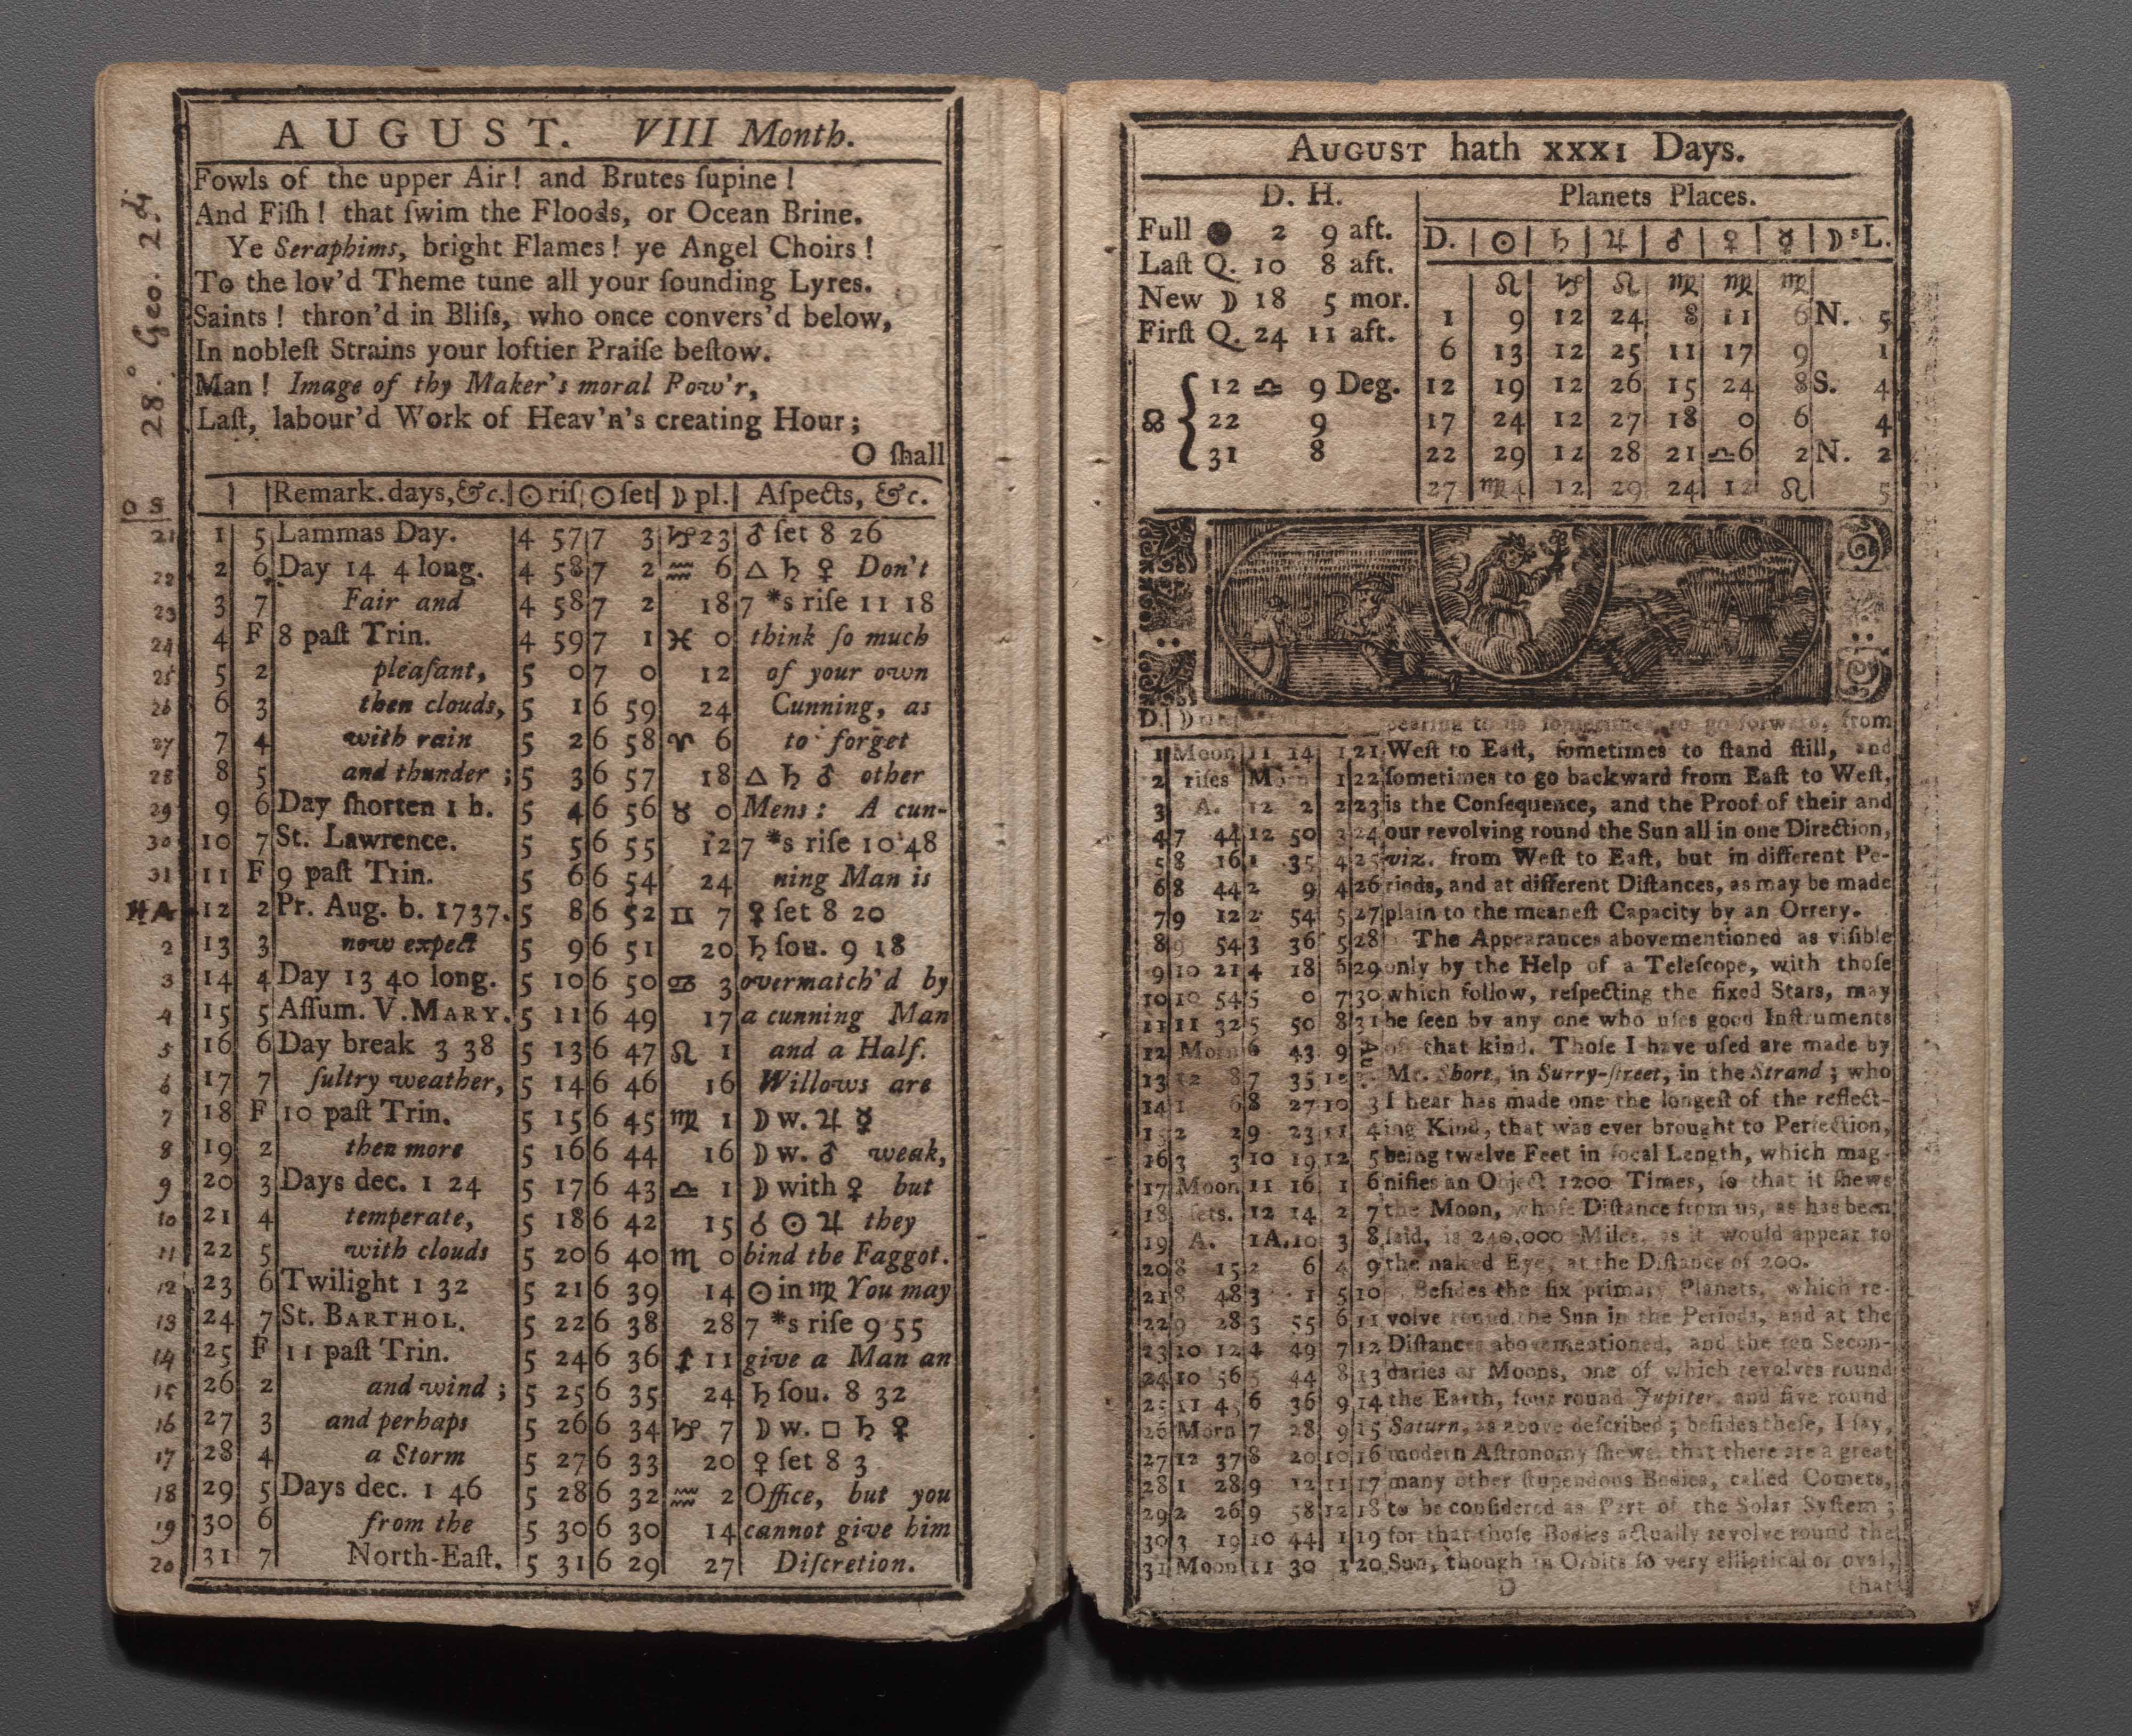 28.° Geo. 2.d
AUGUST. VIII Month.
Fowls of the upper Air! and Brutes ſupine!
And Fiſh! that ſwim the Floods, or Ocean Brine.
Ye Seraphims, bright Flames! ye Angel Choirs!
To the lov'd Theme tune all your ſounding Lyres.
Saints! thron'd in Bliſs, who once convers'd below,
In nobleſt Strains your loftier Praiſe beſtow.
Man! Image of thy Maker's moral Pow'r,
Laſt, labour'd Work of Heav'n's creating Hour;
O ſhall
O S | | Remark. days, &c. | ☉ riſ | ☉ ſet | ☽ pl. | Aſpects, &c.
21 1 5 Lammas Day. 4 57 7 3 ♑ 23 ♂ ſet 8 26
22 2 6 Day 14 4 long. 4 58 7 2 ♒ 6 △ ♄ ♀ Don't
23 3 7 Fair and 4 58 7 2 18 7 *s riſe 11 18
24 4 F 8 paſt Trin. 4 59 7 1 ♓ 0 think ſo much
25 5 2 pleaſant, 5 0 7 0 12 of your own
26 6 3 then clouds, 5 1 6 59 24 Cunning, as
27 7 4 with rain 5 2 6 58 ♈ 6 to forget
28 8 5 and thunder; 5 3 6 57 18 △ ♄ ♂ other
29 9 6 Day ſhorten 1 h. 5 4 6 56 ♉ 0 Mens: A cun-
30 10 7 St. Lawrence. 5 5 6 55 12 7 *s riſe 10 48
31 11 F 9 paſt Trin. 5 6 6 54 24 ning Man is
12 2 Pr. Aug. b. 1737. 5 8 6 52 ♊ 7 ♀ ſet 8 20
2 13 3 now expect 5 9 6 51 20 ♄ ſou. 9 18
3 14 4 Day 13 40 long. 5 10 6 50 ♋ 3 overmatch'd by
4 15 5 Aſſum. V. MARY. 5 11 6 49 17 a cunning Man
5 16 6 Day break 3 38 5 13 6 47 ♌ 1 and a Half.
6 17 7 ſultry weather, 5 14 6 46 16 Willows are
7 18 F 10 paſt Trin. 5 15 6 45 ♍ 1 ☽ w. ♃ ☿
8 19 2 then more 5 16 6 44 16 ☽ w. ♂ weak,
9 20 3 Days dec. 1 24 5 17 6 43 ♎ 1 ☽ with ♀ but
10 21 4 temperate, 5 18 6 42 15 ☌ ☉ ♃ they
11 22 5 with clouds 5 20 6 40 ♏ 0 bind the Faggot.
12 23 6 Twilight 1 32 5 21 6 39 14 ☉ in ♍ You may
13 24 7 St. BARTHOL. 5 22 6 38 28 7 *s riſe 9 55
14 25 F 11 paſt Trin. 5 24 6 36 ♐ 11 give a Man an
15 26 2 and wind; 5 25 6 35 24 ♄ ſou. 8 32
16 27 3 and perhaps 5 26 6 34 ♑ 7 ☽ w. □ ♄ ♀
17 28 4 a Storm 5 27 6 33 20 ♀ ſet 8 3
18 29 5 Days dec. 1 46 5 28 6 32 ♒ 2 Office, but you
19 30 6 from the 5 30 6 30 14 cannot give him
20 31 7 North-Eaſt. 5 31 6 29 27 Diſcretion.
AUGUST hath XXXI Days.
D. H.
Full ● 2 9 aft.
Laſt Q. 10 8 aft.
New ☽ 18 5 mor.
Firſt Q. 24 11 aft.
☊ { 12 ♎ 9 Deg.
22 9
31 8
Planets Places.
D. | ☉ | ♄ | ♃ | ♂ | ♀ | ☿ | ☽'s L.
♌ ♑ ♌ ♍ ♍ ♍
1 9 12 24 8 11 6 N. 5
6 13 12 25 11 17 9 1
12 19 12 26 15 24 8 S. 4
17 24 12 27 18 0 6 4
22 29 12 28 21 ♎6 2 N. 2
27 ♍4 12 29 24 12 ♌ 5
D. pearing to us ſometimes to go forward, from
1 Moon 11 14 1 21 Weſt to Eaſt, ſometimes to ſtand ſtill, and
2 riſes Morn 1 22 ſometimes to go backward from Eaſt to Weſt,
3 A. 12 2 2 23 is the Conſequence, and the Proof of their and
4 7 44 12 50 3 24 our revolving round the Sun all in one Direction,
5 8 16 1 35 4 25 viz. from Weſt to Eaſt, but in different Pe-
6 8 44 2 9 4 26 riods, and at different Diſtances, as may be made
7 9 12 2 54 5 27 plain to the meaneſt Capacity by an Orrery.
8 9 54 3 36 5 28 The Appearances abovementioned as viſible
9 10 21 4 18 6 29 only by the Help of a Teleſcope, with thoſe
10 10 54 5 0 7 30 which follow, reſpecting the fixed Stars, may
11 11 32 5 50 8 31 be ſeen by any one who uſes good Inſtruments
12 Morn 6 43 9 Au of that kind. Thoſe I have uſed are made by
13 12 8 7 35 10 Mr. Short, in Surry-ſtreet, in the Strand; who
14 1 6 8 27 10 3 I hear has made one the longeſt of the reflect-
15 2 2 9 23 11 4 ing Kind, that was ever brought to Perfection,
16 3 3 10 19 12 5 being twelve Feet in focal Length, which mag-
17 Moon 11 16 1 6 nifies an Object 1200 Times, ſo that it ſhews
18 ſets. 12 14 2 7 the Moon, whoſe Diſtance from us, as has been
19 A. 1A.10 3 8 ſaid, is 240,000 Miles, as it would appear to
20 8 15 2 6 4 9 the naked Eye, at the Diſtance of 200.
21 8 48 3 1 5 10 Beſides the ſix primary Planets, which re-
22 9 28 3 55 6 11 volve round the Sun in the Periods, and at the
23 10 12 4 49 7 12 Diſtances abovementioned, and the ten Secon-
24 10 56 5 44 8 13 daries or Moons, one of which revolves round
25 11 45 6 36 9 14 the Earth, four round Jupiter, and five round
26 Morn 7 28 9 15 Saturn, as above deſcribed; beſides theſe, I ſay,
27 12 37 8 20 10 16 modern Aſtronomy ſhews, that there are a great
28 1 28 9 12 11 17 many other ſtupendous Bodies, called Comets,
29 2 26 9 58 12 18 to be conſidered as Part of the Solar Syſtem;
30 3 19 10 44 1 19 for that thoſe Bodies actually revolve round the
31 Moon 11 30 1 20 Sun, though in Orbits ſo very elliptical or oval,
D that